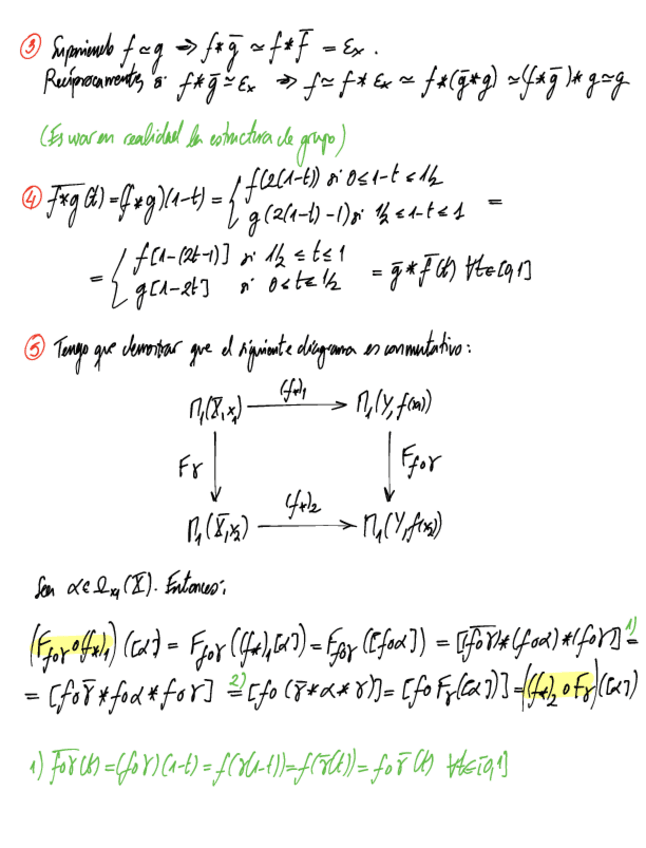 ③ Suponiendo f ≃ g ⟹ f * ḡ ≃ f * f̄ = εₓ.
Recíprocamente, si f * ḡ ≃ εₓ ⟹ f ≃ f * εₓ ≃ f * (ḡ * g) ≃ (f * ḡ) * g ≃ g
(Es usar en realidad la estructura de grupo)
④ \overline{f*g}(t) = (f*g)(1-t) = { f(2(1-t)) si 0 ≤ 1-t ≤ 1/2
g(2(1-t)-1) si 1/2 ≤ 1-t ≤ 1 =
= { f[1-(2t-1)] si 1/2 ≤ t ≤ 1
g[1-2t] si 0 ≤ t ≤ 1/2 = ḡ * f̄(t) ∀t∈[0,1]
⑤ Tengo que demostrar que el siguiente diagrama es conmutativo:
(f*)₁
Π₁(X, x₁) ⟶ Π₁(Y, f(x₁))
F_γ ↓ ↓ F_{f∘γ}
(f*)₂
Π₁(X, x₂) ⟶ Π₁(Y, f(x₂))
Sea α ∈ Ω_{x₁}(X). Entonces:
(F_{f∘γ} ∘ (f*)₁)([α]) = F_{f∘γ}((f*)₁[α]) = F_{f∘γ}([f∘α]) = [\overline{(f∘γ)} * (f∘α) * (f∘γ)] =¹⁾
= [f∘γ̄ * f∘α * f∘γ] =²⁾ [f∘(γ̄ * α * γ)] = [f∘F_γ([α])] = ((f*)₂ ∘ F_γ)([α])
1) \overline{f∘γ}(t) = (f∘γ)(1-t) = f(γ(1-t)) = f(γ̄(t)) = f∘γ̄(t) ∀t∈[0,1]